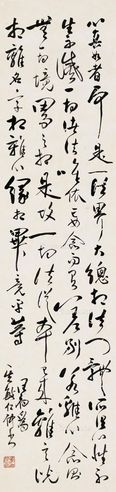 心真如者即是一法界大總相法門體所謂心性不
生不滅一切諸法唯依妄念而有差別若離心念則
無一切境界之相是故一切法從本已來離言說
相離名字相離心緣相畢竟平等